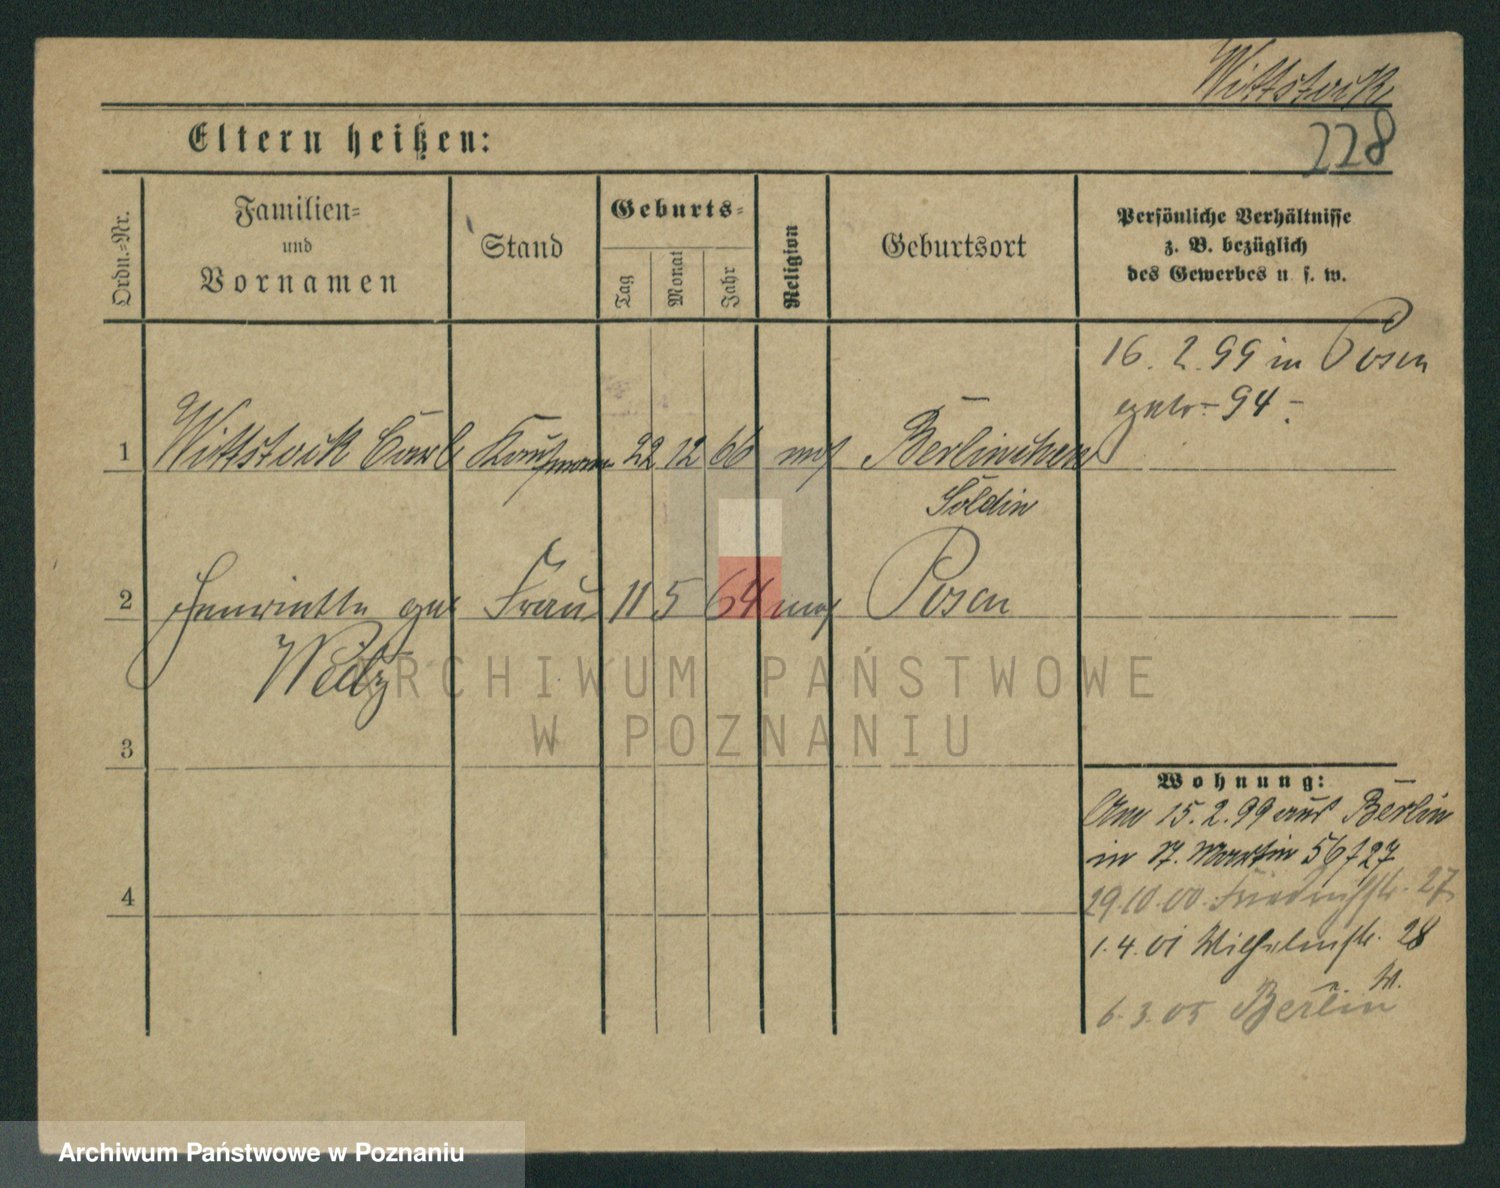 Wittstock
228
Eltern heißen:
Ordn.-Nr.
Familien-
und
Vornamen
Stand
Geburts-
Tag
Monat
Jahr
Religion
Geburtsort
Persönliche Verhältnisse
z. B. bezüglich
des Gewerbes u. s. w.
16. 2. 99 in Posen
94
1 Wittstock Carl Kaufmann 22 12 66 mos Berlinchen
Soldin
2 Henriette geb Frau 11 5 64 mos Posen
3
4
Wohnung:
Am 15. 2. 99 aus Berlin
in Martin 56/27
29.10.00. Friedrichstr. 27
1. 4. 01 Wilhelmstr. 28
6. 3. 05 Berlin W.
ARCHIWUM PAŃSTWOWE
W POZNANIU
Archiwum Państwowe w Poznaniu